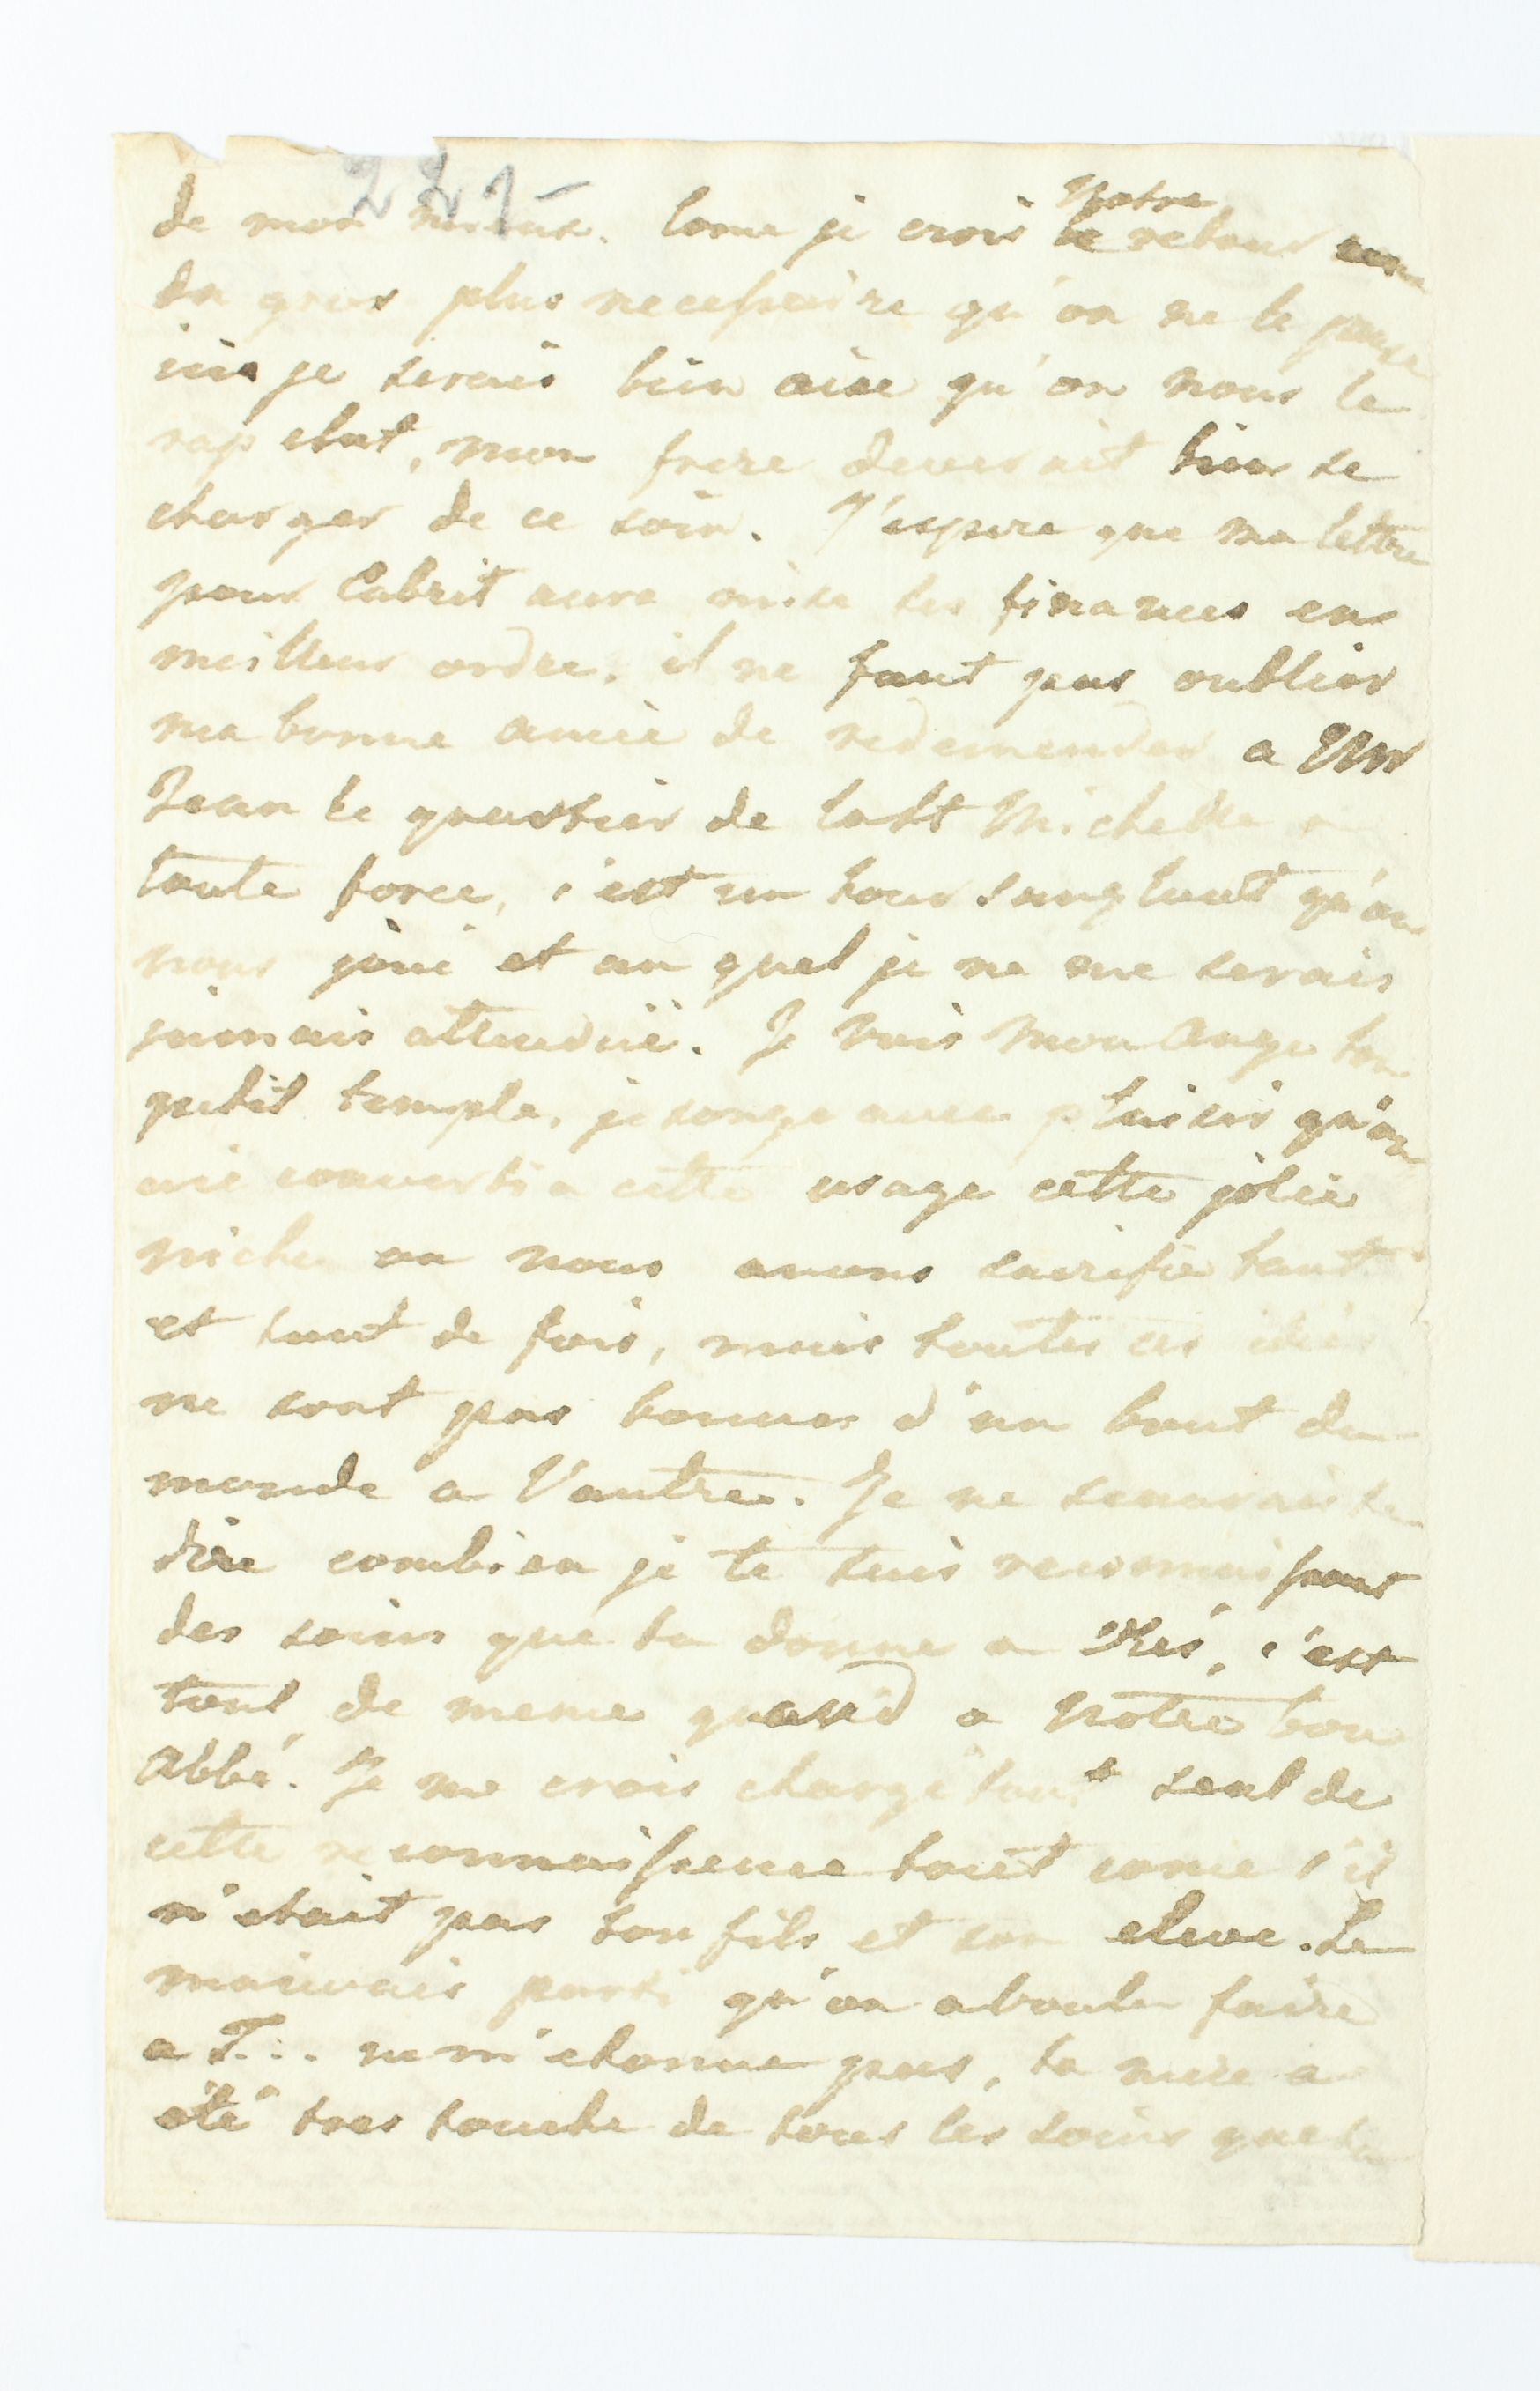 221
Notre
de mon mieux. Come je crois le retour
du grus plus necessaire qu'on ne le pense
ici je serais bien aise qu'on nous le
rap elat, mon frere deuverait bien se
charger de ce soin. J'espere que ma lettre
pour Cabrit aura mise ses finances en
meilleur ordre. il ne faut pas oublier
ma bonne amie de redemender a Mr
Jean le quartier de Michelle a
toute force, c'est un tour sanglant qu'on
nous joüe et au quel je ne me serais
jamais attendüe. Je vois mon Ange ton
petit temple, je songe avec plaisir qu'on
aie converti a cette usage cette jolie
niche ou nous avons sacrifie tant
et tant de fois, mais toutes ces idées
ne sont pas bonnes d'un bout du
monde a l'autre. Je ne scaurai te
dire combien je te suis reconnaissant
des soins que tu donne a Résé, c'est
tout de meme quand a notre bon
Abbé. Je me crois chargé tout seul de
cette reconnaissence tout come s'il
n'etait pas ton fils et son eleve. Le
mauvais parti qu'on a voulu faire
a T... ne m'etonne pas, ta mere a
été tres touche de tous les soins que tu